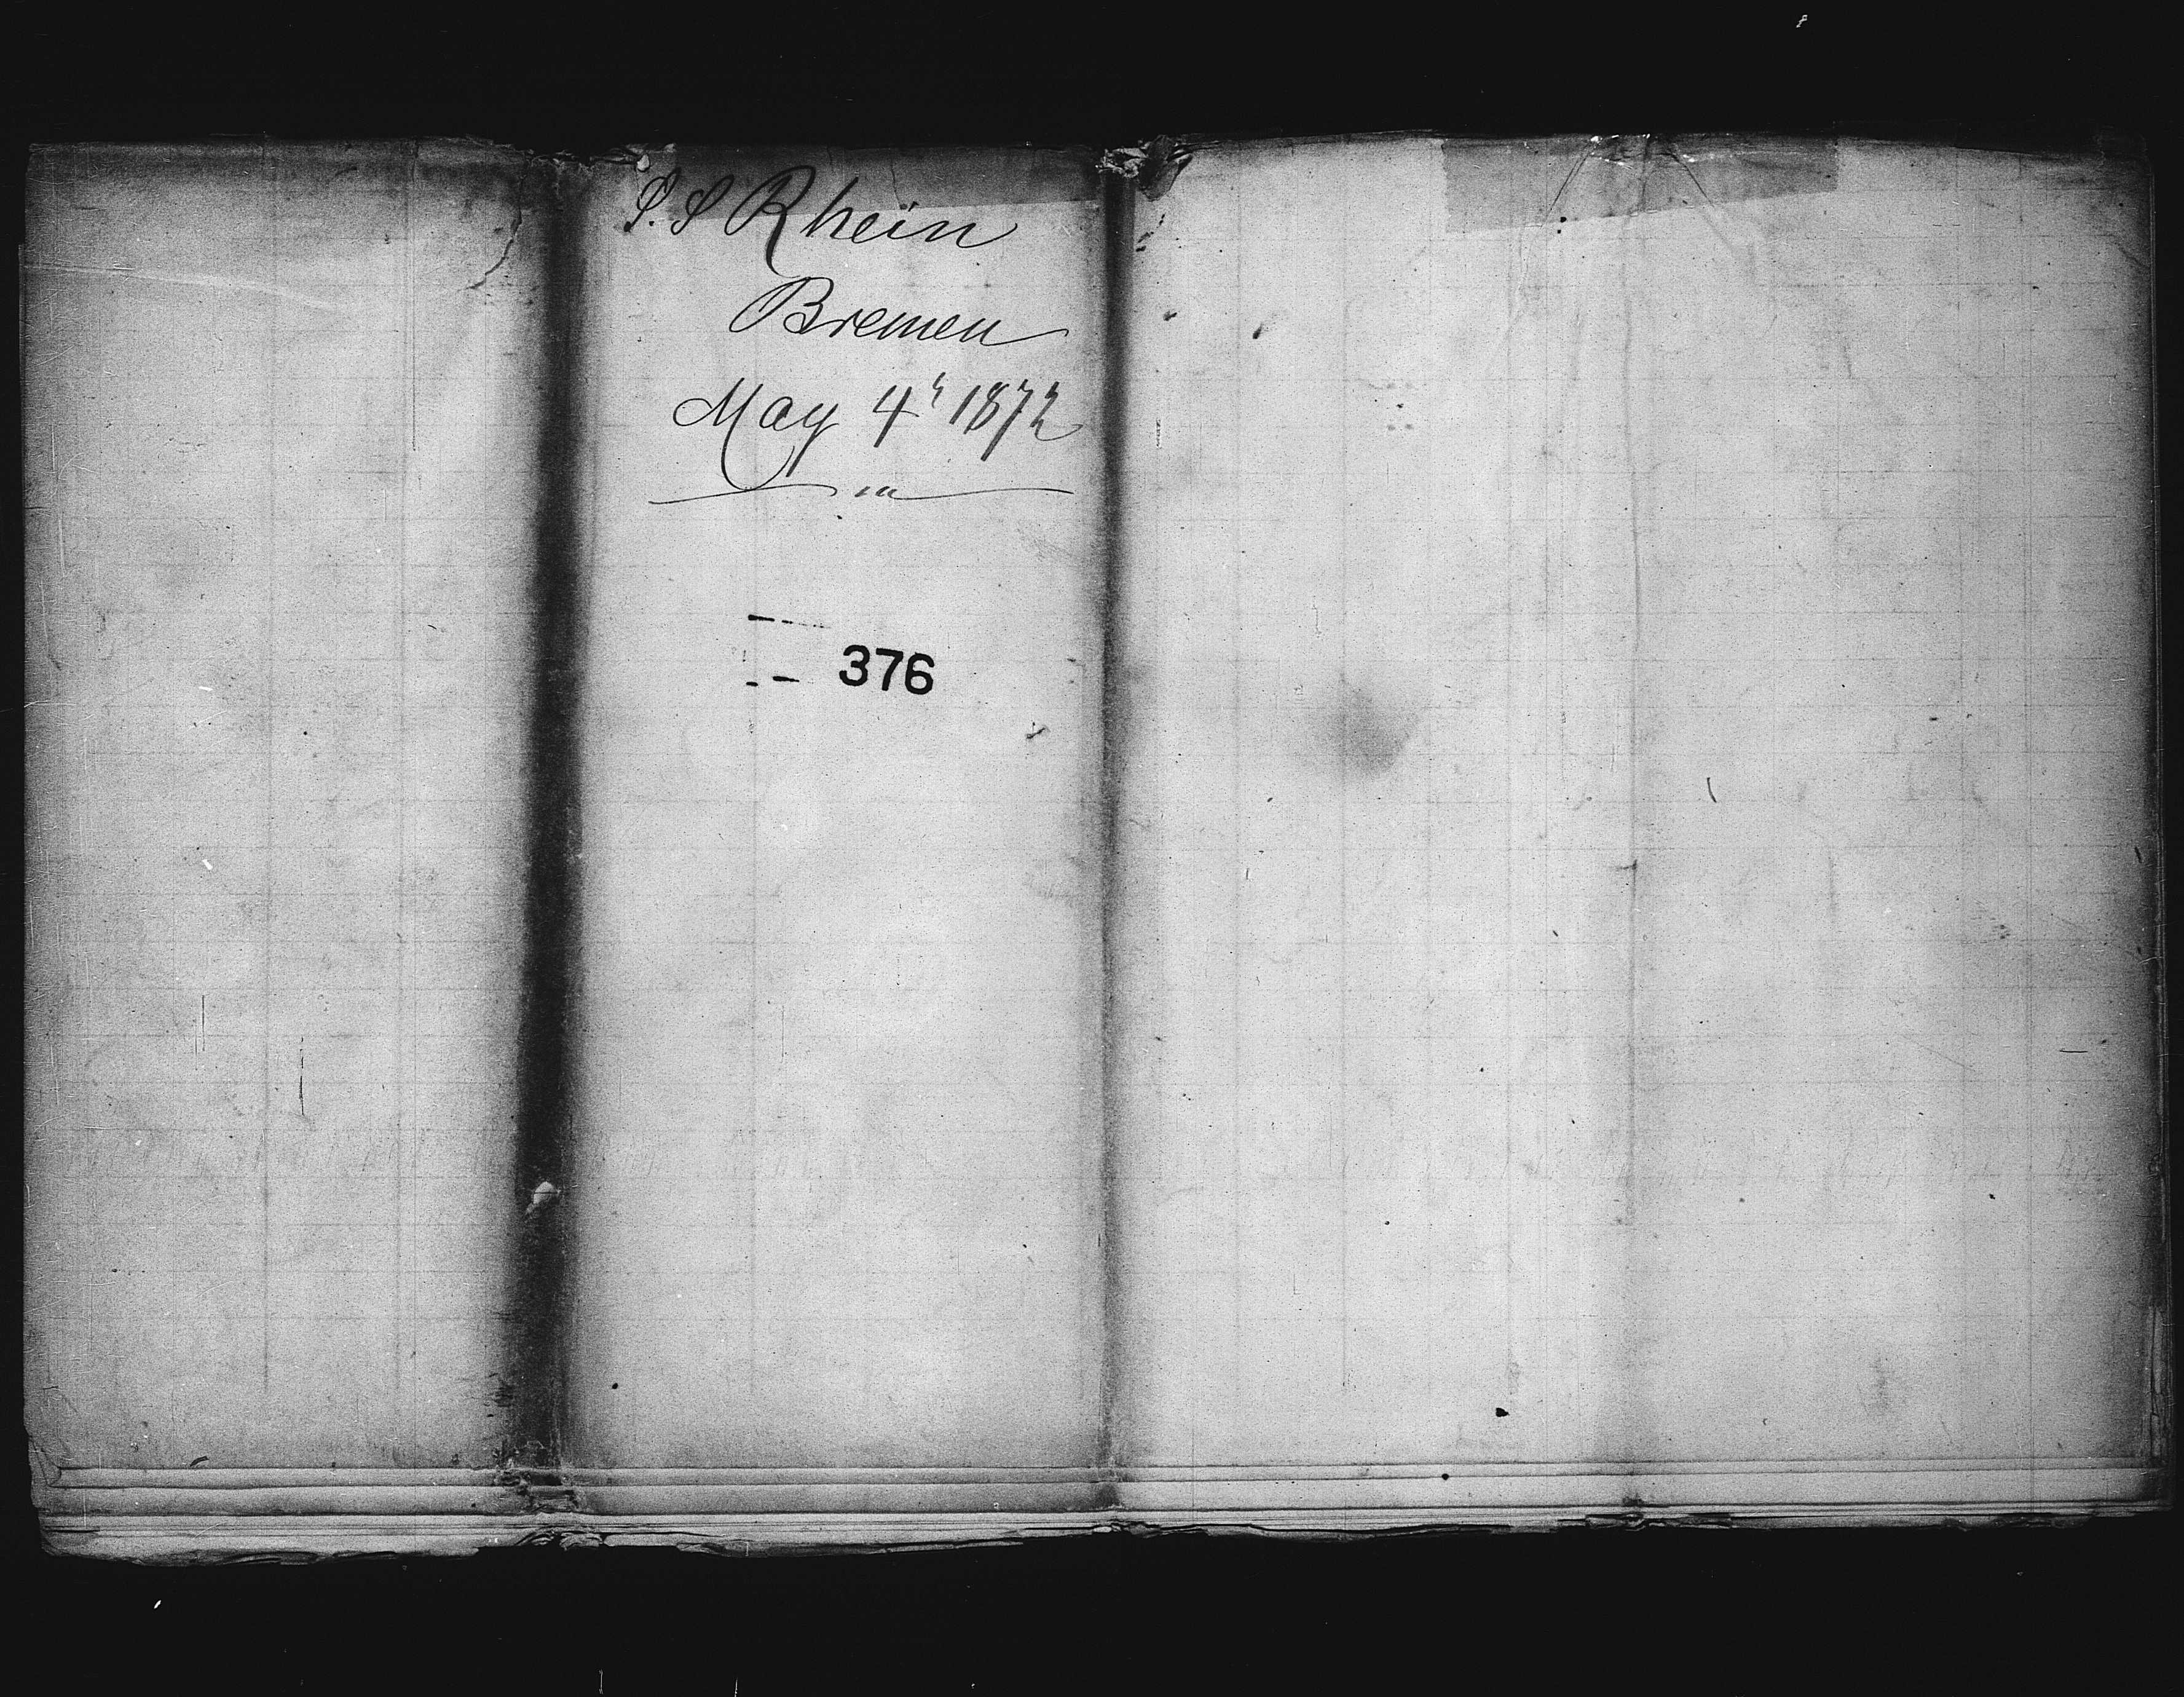 S.S Rhein
Bremen
May 4h 1872
376